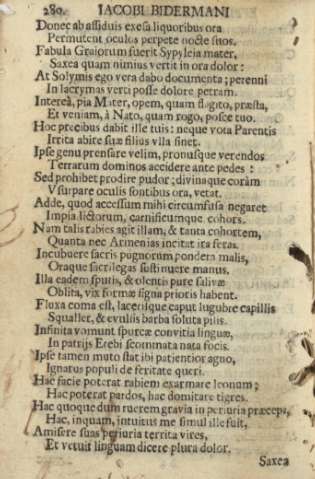 280. IACOBI BIDERMANI
Donec ab assiduis exesa liquoribus ora
Permutent oculos perpete nocte sitos.
Fabula Graiorum fuerit Sypyleia mater,
Saxea quam nimius vertit in ora dolor:
At Solymis ego vera dabo documenta; perenni
In lacrymas verti posse dolore petram.
Intereà, pia Mater, opem, quam flagito, præsta,
Et veniam, à Nato, quam rogo, posce tuo.
Hoc precibus dabit ille tuis: neque vota Parentis
Irrita abire suæ filius vlla sinet.
Ipse genu prensare velim, pronusque verendos
Terrarum dominos accidere ante pedes:
Sed prohibet prodire pudor; divinaque coràm
Vsurpare oculis sontibus ora, vetat.
Adde, quod accessum mihi circumfusa negaret
Impia lictorum, carnificumque cohors.
Nam talis rabies agit illam, & tanta cohortem,
Quanta nec Armenias incitat ira feras.
Incubuere sacris pugnorum pondera malis,
Oraque sacrilegas sustinuere manus.
Illa eadem sputis, & olentis pure salivæ
Oblita, vix formæ signa prioris habent.
Fluxa coma est, lacerisque caput lugubre capillis
Squallet, & evulsis barba soluta pilis.
Infinita vomunt spurcæ convitia linguæ,
In patrijs Erebi scommata nata focis.
Ipse tamen muto stat ibi patientior agno,
Ignarus populi de feritate queri.
Hac facie poterat rabiem exarmare leonum;
Hac poterat pardos, hac domitare tigres.
Hac quoque dum ruerem gravia in periuria præceps,
Hac, inquam, intuitus me simul ille fuit,
Amisere suas periuria territa vires,
Et vetuit linguam dicere plura dolor.
Saxea